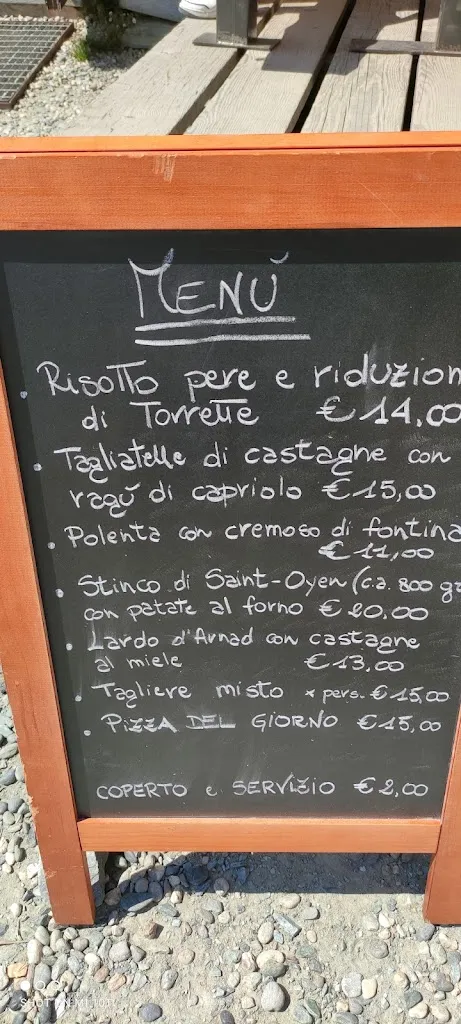 MENÙ
Risotto pere e riduzion
di Torrette € 14,00
Tagliatelle di castagne con
ragù di capriolo € 15,00
Polenta con cremoso di fontina
€ 11,00
Stinco di Saint-Oyen (c.a. 800 gr
con patate al forno € 20,00
Lardo d'Arnad con castagne
al miele € 13,00
Tagliere misto x pers. € 15,00
PIZZA DEL GIORNO € 15,00
COPERTO e SERVIZIO € 2,00